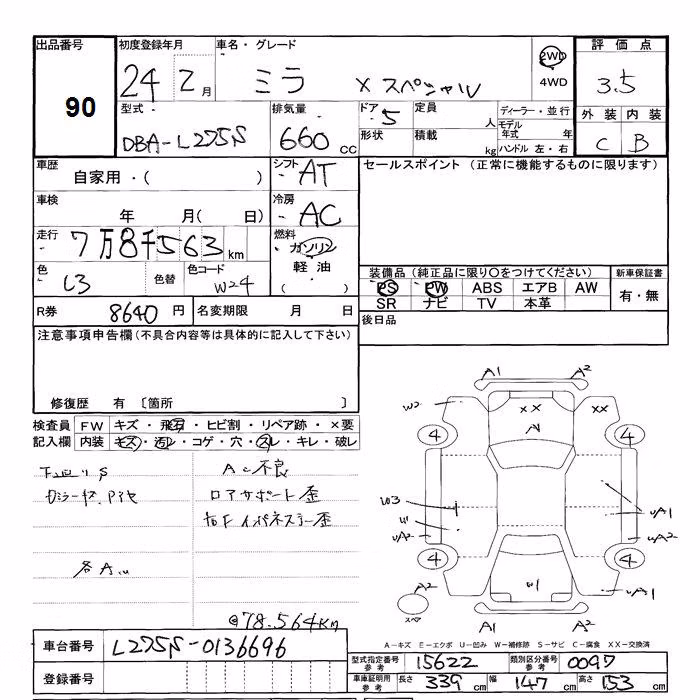 出品番号 初度登録年月 車名・グレード 評価点
90 24 2月 ミラ Xスペシャル 2WD 4WD 3.5
型式 排気量 ドア 定員 ディーラー・並行 外装 内装
DBA-L275S 660cc 5 人 モデル年式 年 C B
形状 積載 kg ハンドル 左・右
車歴 シフト セールスポイント(正常に機能するものに限ります)
自家用・( ) AT
車検 冷房
年 月( 日) AC
走行 燃料
7万8千563km ガソリン
色 色替 色コード 軽油
W24 ( )
装備品(純正品に限り○をつけてください) 新車保証書
PS PW ABS エアB AW 有・無
SR ナビ TV 本革
R券 8640円 名変期限 月 日
後日品
注意事項申告欄(不具合内容等は具体的に記入して下さい)
修復歴 有 〔箇所 〕
検査員 FW キズ・飛石・ヒビ割・リペア跡・×要
記入欄 内装 キズ・汚レ・コゲ・穴・スレ・キレ・破レ
下回りS AC不良
ロアサポート歪
右Fインパネステー歪
各A.u
@78.564Km
A1 A2
W2 XX XX
A1
4 4
W3
W1 uA1
uA2 uA2
4 4
A2 W1 uA1
スペア A1 A2
A-キズ E-エクボ U-凹み W-補修跡 S-サビ C-腐食 XX-交換済
車台番号 L275S-0136696
型式指定番号 参考 15622 類別区分番号 参考 0097
登録番号
車庫証明用 参考 長さ 339cm 幅 147cm 高さ 153cm